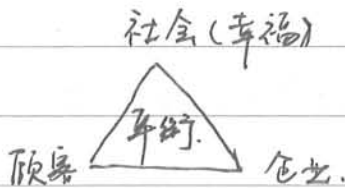 社会(幸福)
平衡.
顾客 企业.